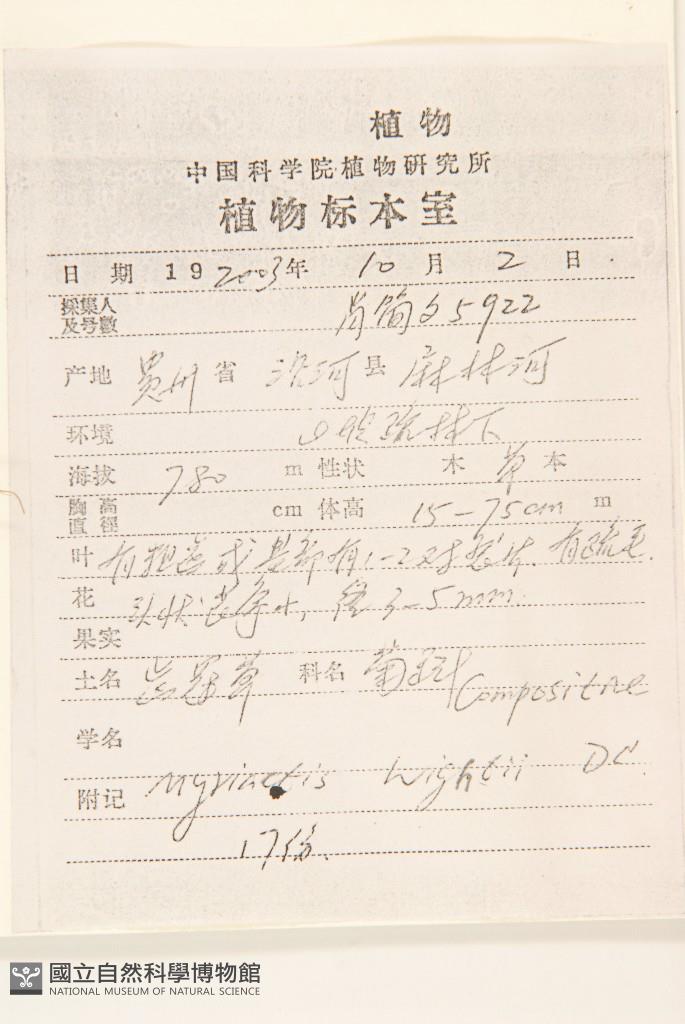 植物
中国科学院植物研究所
植物标本室
日期 19 2003年 10月 2日
採集人及号數 肖简文5922
产地 贵州省 沿河县 麻林河
环境 疏林下
海拔 780 m 性状 木 草本
胸高直径 cm 体高 15-75cm m
叶 有疏毛.
花 头状花序小, 径3-5mm.
果实
土名 齿冠草 科名 菊科 Compositae
学名
附记 Myriactis Wightii DC.
17份.
國立自然科學博物館
NATIONAL MUSEUM OF NATURAL SCIENCE